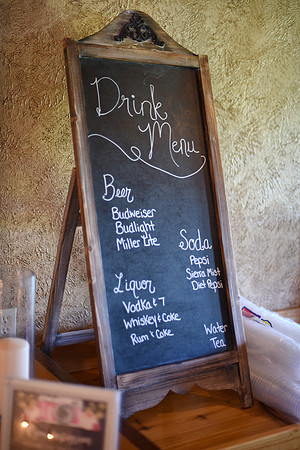 Drink
Menu
Beer
Budweiser
Budlight
Miller Lite
Soda
Pepsi
Sierra Mist
Diet Pepsi
Liquor
Vodka & 7
Whiskey & Coke
Rum & Coke
Water
Tea